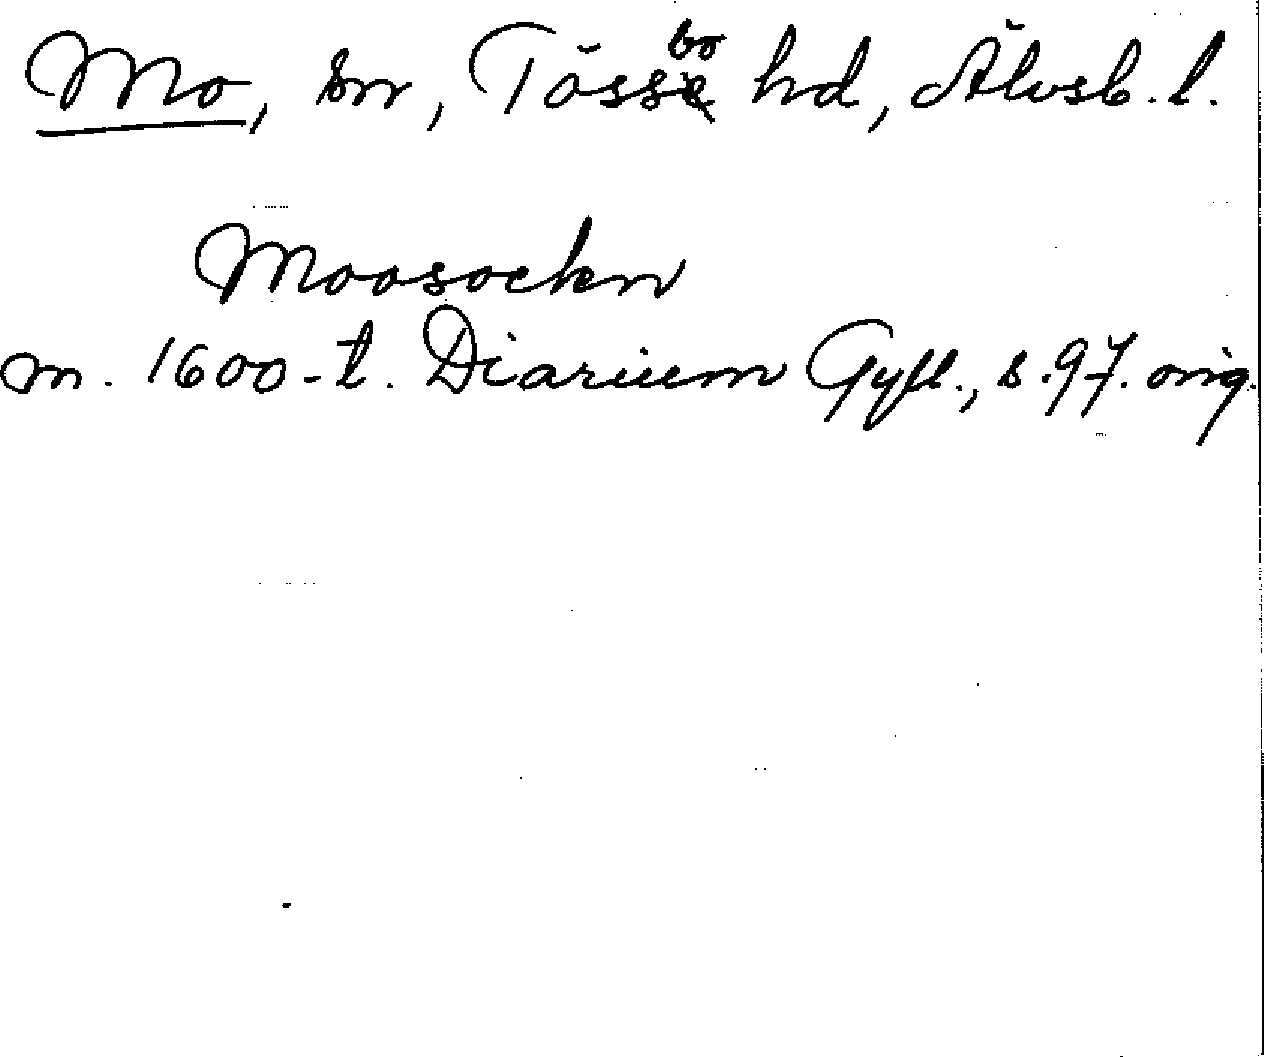 Mo, sn, Tössbo hd, Älvsb. l.
Moosockn
m. 1600-t. Diarium Gyll., s. 97. orig.